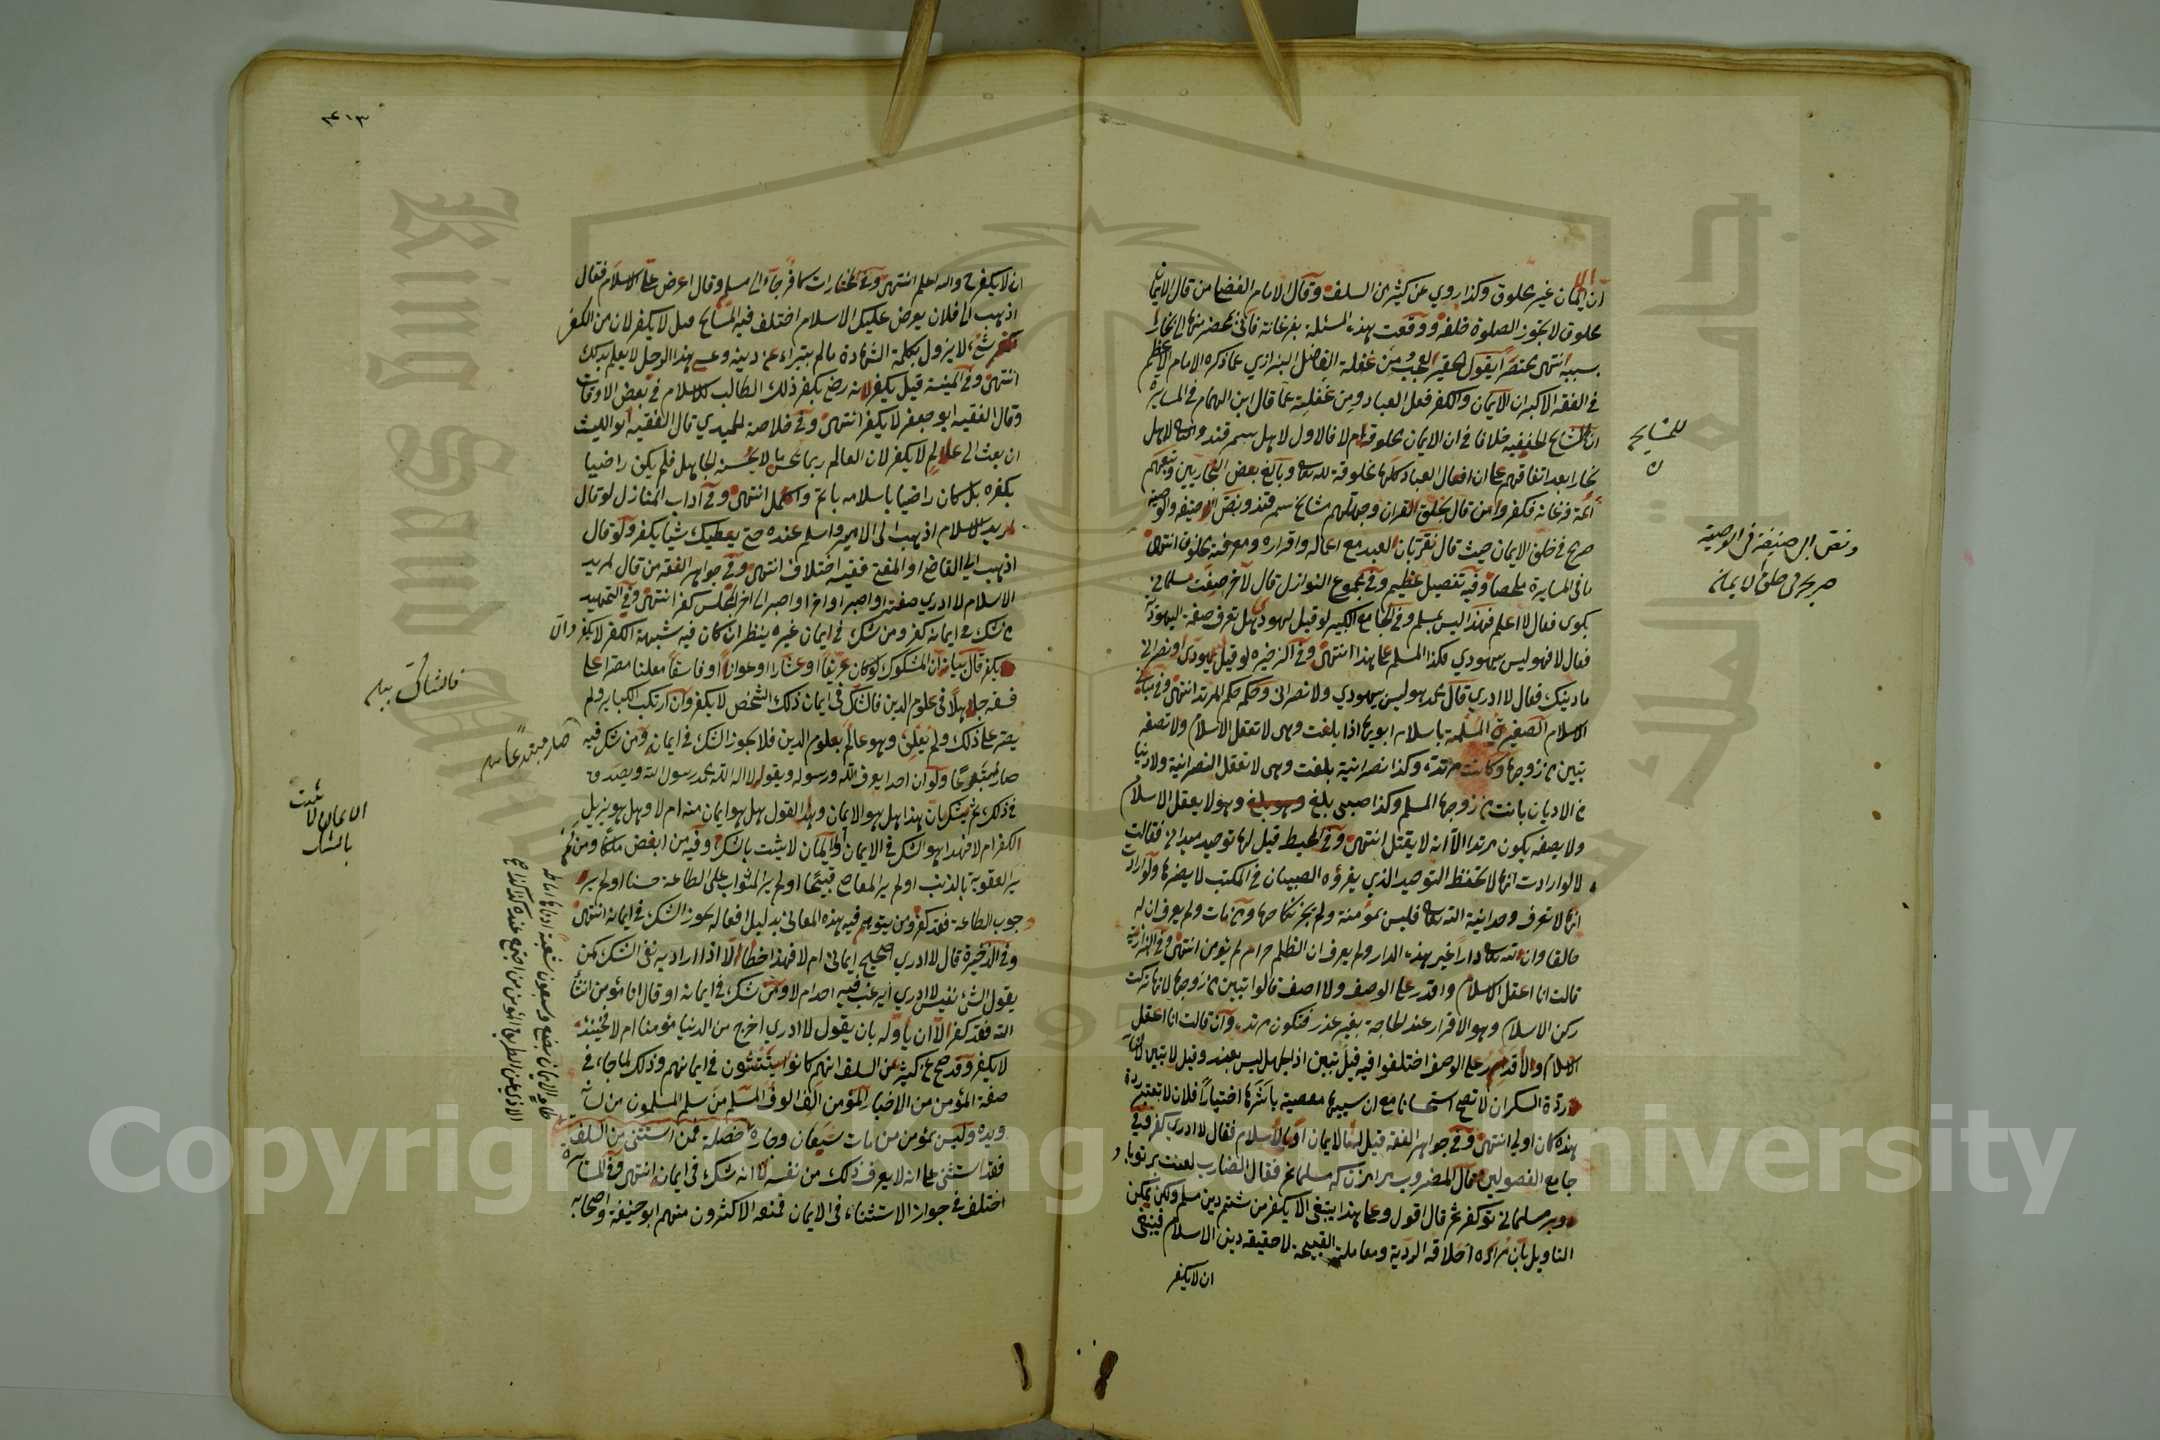 ان الايمان غير مخلوق وكذا روي عن كثير من السلف وقال الامام الفضلي من قال الايمان
مخلوق لا تجوز الصلوة خلفه ووقعت هذه المسئلة بفرغانة فاتى بمحضر منها الى بخارا
انتهى مختصرا يقول الفقير العجب من غفلة الفاضل البزازي عما ذكره الامام الاعظم
في الفقه الاكبر ان الايمان والكفر فعل العباد ومن غفلته عما قال ابن الهمام في المسايرة
ان للمشايخ الحنفية خلافا في ان الايمان مخلوق ام لا فالاول لاهل سمرقند والثاني لاهل
بخارا بعد اتفاقهم على ان افعال العباد كلها مخلوقة لله تعالى وبالغ بعض البخاريين وتبعهم
ائمة فرغانة فكفروا من قال بخلق القران وجهلهم مشايخ سمرقند ونص ابو حنيفة في الوصية
صريح في خلق الايمان حيث قال نقر بان العبد مع اعماله واقراره ومعرفته مخلوق انتهى
ما في المسايرة ملخصا وفيه تفصيل عظيم وفي مجموع النوازل قال لآخر صفت مسلماني
بكوى فقال لا اعلم فهذا ليس بمسلم وفي الجامع الكبير لو قيل ليهودي هل تعرف صفة اليهودية
فقال لا فهو ليس بيهودي فكذا المسلم على هذا انتهى وفي الذخيره لو قيل ليهودي او نصراني
ما دينك فقال لا ادري قال محمد هو ليس بيهودي ولا نصراني وحكمه حكم المرتد انتهى
الاسلام الصغيرة المسلمة باسلام ابويها اذا بلغت وهى لا تعقل الاسلام ولا تصفه
تبين من زوجها وكانت مرتدة وكذا نصرانية بلغت وهى لا تعقل النصرانية ولا دينا
من الاديان بانت من زوجها المسلم وكذا صبى بلغ وهو لا يعقل الاسلام
ولا يصفه يكون مرتدا الا انه لا يقتل انتهى وفي المحيط قيل لها توحيد ميدانى فقالت
لا لو ارادت انها لا تحفظ التوحيد الذي يقرؤه الصبيان في المكتب لا يضرها ولو ارادت
انها لا تعرف وحدانية الله تعالى فليس بمؤمنة ولم يجز نكاحها ومن مات ولم يعرف ان له
خالقا وان لله تعالى دارا غير هذه الدار ولم يعرف ان الظلم حرام لم يؤمن انتهى
قالت انا اعقل الاسلام واقدر على الوصف ولا اصف قالوا تبين من زوجها لانها تركت
ركن الاسلام وهو الاقرار عند الحاجة بغير عذر فتكون مرتدة وان قالت انا اعقل
الاسلام ولا اقدر على الوصف اختلفوا فيه قيل تبين اذ الجهل ليس بعذر وقيل لا تبين
وردة السكران لا تصح استحسانا مع ان سببها معصية باشرها اختيارا فلان لا تعتبر ردة
هذه كان اولى انتهى وفي جواهر الفقه قيل لها الايمان او الاسلام فقال لا ادري كفر وفي
جامع الفصولين قال المضروب مسلمانم فقال الضارب لعنت بر تو باد
وبر مسلمانى تو كفر ثم قال اقول وعلى هذا ينبغى الا يكفر من شتم دين مسلم ولكن يمكن
التاويل بان مراده اخلاقه الردية ومعاملته القبيحة لا حقيقة دين الاسلام فينبغى
ان لا يكفر
للمشايخ
ن
ونص ابى حنيفة في الوصية
صريح في خلق الايمان
٤١٣
ان لا يكفر ح والله اعلم انتهى وفي المختارات كافر جاء الى مسلم وقال اعرض على الاسلام فقال
اذهب الى فلان يعرض عليك الاسلام اختلف فيه المشايخ قيل لا يكفر لان من الكفر
كفر شئ لا يزول بكلمة الشهادة ما لم يتبراء عن دينه وعسى هذا الرجل لا يعلم بذلك
انتهى وفي المنية قيل يكفر لانه رضى بكفر ذلك الطالب للاسلام في بعض الاوقات
وقال الفقيه ابو جعفر لا يكفر انتهى وفي خلاصة الحميدي قال الفقيه ابو الليث
ان بعث الى عالم لا يكفر لان العالم ربما يحسن ما لا يحسنه الجاهل فلم يكن راضيا
بكفره بل كان راضيا باسلامه باتم واكمل انتهى وفي آداب المنازل لو قال
لمريد الاسلام اذهب الى الامير واسلم عنده حتى يعطيك شيأ يكفر ولو قال
اذهب الى القاضى او المفتى ففيه اختلاف انتهى وفي جواهر الفقه من قال لمريد
الاسلام لا ادري صفته او اصبر او اخر او اصبر الى آخر المجلس كفر انتهى وفي التمهيد
من شك في ايمانه كفر ومن شك في ايمان غيره ينظر ان كان فيه شبهة الكفر لا يكفر والا
يكفر قال بيانه ان المشكوك لو كان عريفا او عشارا او عوانا او فاسقا معلنا مصرا على
فسقه جاهلا في علوم الدين فالشك في ايمان ذلك الشخص لا يكفر وان ارتكب الكبائر ولم
يصر على ذلك ولم يعلن وهو عالم بعلوم الدين فلا يجوز الشك في ايمانه ومن شك فيه
صار مبتدعا ولو ان احدا يعرف الله ورسوله ويقول لا اله الا الله محمد رسول الله ويصدق
في ذلك ثم يشك بان هذا هل هو الايمان وهذا القول هل هو ايمان منه ام لا وهل هو يزيل
الكفر ام لا فهذا هو الشك في الايمان والايمان لا يثبت بالشك وفيه من ابغض ملكا ومن لم
ير العقوبة بالذنب او لم ير المعاصى قبيحا او لم ير الثواب على الطاعة حسنا او لم ير
وجوب الطاعة فقد كفر ومن يتوهم فيه هذه المعانى بدليل افعاله يجوز الشك في ايمانه انتهى
وفي الذخيرة قال لا ادري اصحيح ايمانى ام لا فهذا خطأ الا اذا اراد به نفى الشك كمن
يقول لشئ نفيس لا ادري أيرغب فيه احد ام لا ومن شك في ايمانه او قال انا مؤمن ان شاء
الله فقد كفر الا ان ياوله بان يقول لا ادري اخرج من الدنيا مؤمنا ام لا فحينئذ
لا يكفر وقد صح عن كثير من السلف انهم كانوا يستثنون في ايمانهم وذلك لما جاء في
صفة المؤمن من الاخبار المؤمن الف الوف المسلم من سلم المسلمون من لسانه
ويده وليس بمؤمن من بات شبعان وجاره فمن استثنى من السلف
فقد استثنى على انه لا يعرف ذلك من نفسه لا انه شك في ايمانه انتهى وفي المسايرة
اختلف في جواز الاستثناء في الايمان فمنعه الاكثرون منهم ابو حنيفة واصحابه
فالشاك فيه
صار مبتدعا
الايمان لا يثبت
بالشك
King Saud University
Copyright © King Saud University
1957